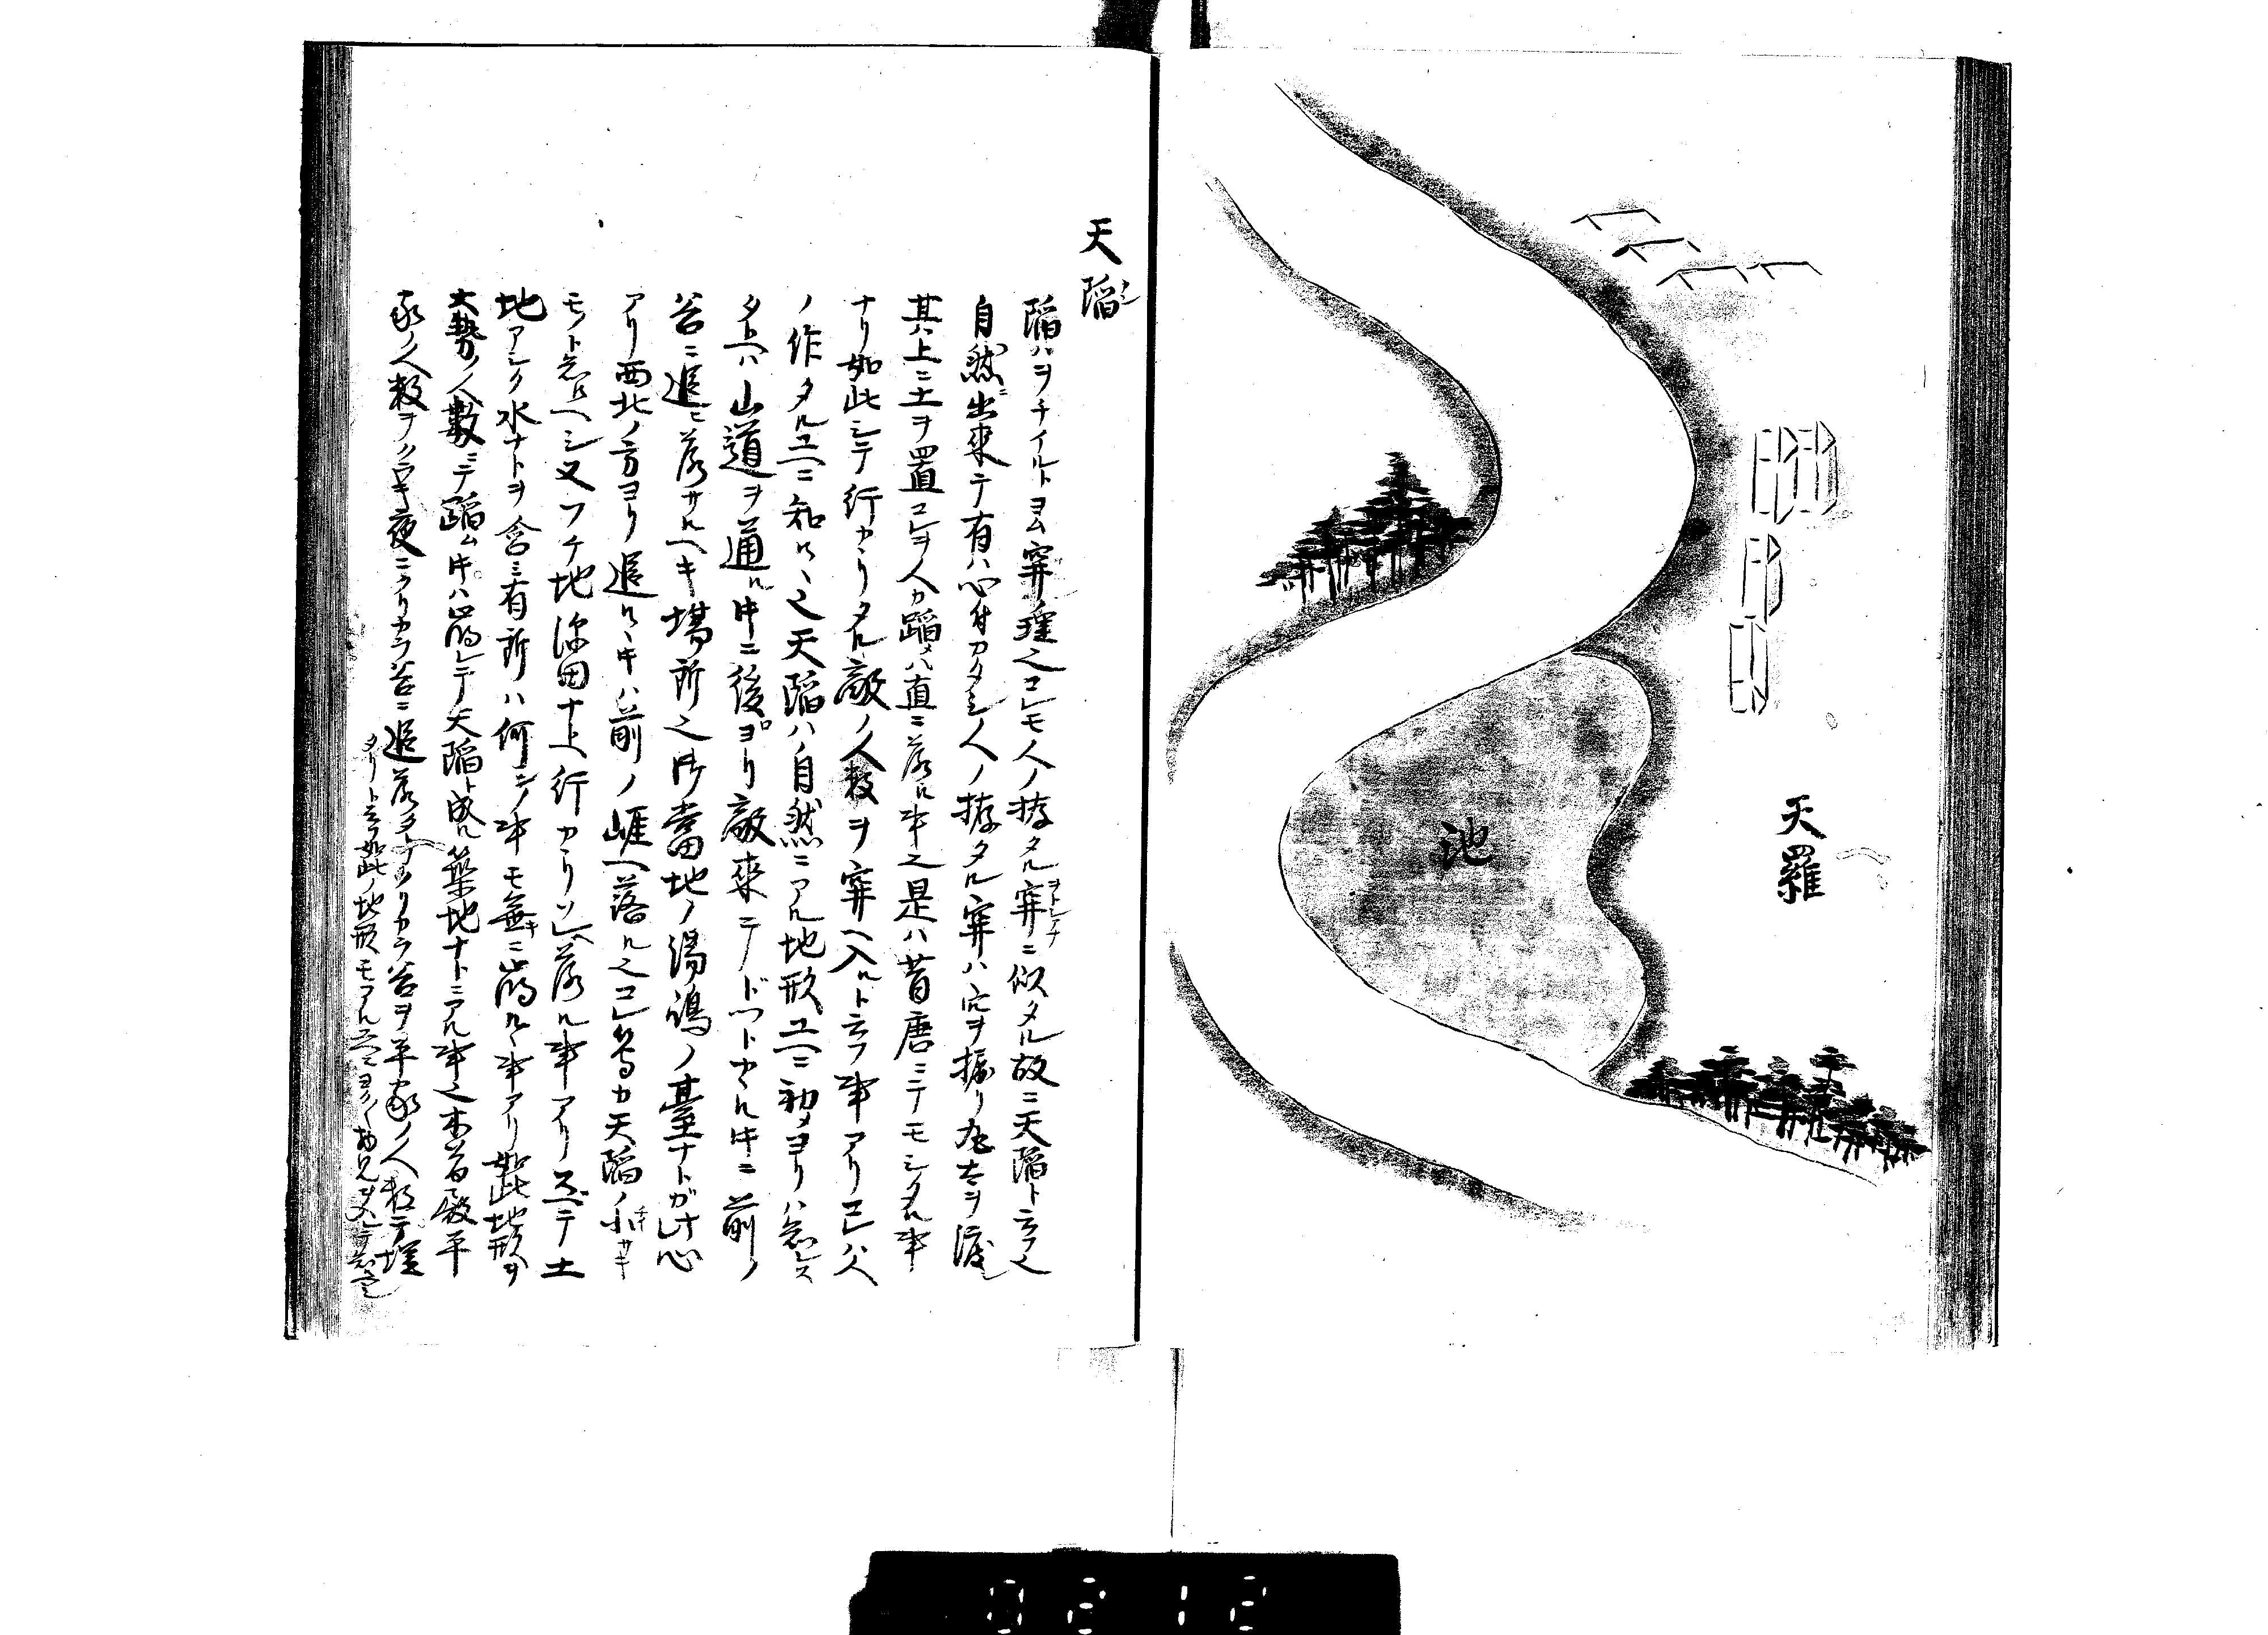 天羅
池
天陥
陥ハヲチイルトヨム穽ノ種之コレモ人ノ拵タル穽ニ似タル故ニ天陥ト云フ之
自然ニ出来テ有ハ心付カタシ人ノ拵タル穽ハ穴ヲ掘リ左右ヲ渡シ
其ノ上ニ土ヲ置コレヲ人カ蹈メハ直ニ落ル事之是ハ昔唐ニテモシタル事
ナリ如此シテ行カヽリタル敵ノ人数ヲ穽ヘ入ルト云フ事アリコレハ人
ノ作タルユヘニ知ルヽ之天陥ハ自然ニアル地形ユヘニ初メヨリハ知レス
タトヘハ山道ヲ通ル時ニ後ヨリ敵来テドツトカヽル時ニ前ノ
谷ニ追ヒ落サルヘキ場所之御當地ノ湯嶋ノ臺ナトガ此心
アリ西北ノ方ヨリ追ルヽ時ハ前ノ崕ヘ落ル之コレ等カ天陥ノ小サキ
モノト知ヘシ又フケ地深田ナトヘ行カヽリソレヘ落ル事アリスベテ土
地アシク水ナトヲ含ミ有所ハ何ンノ事モ無キニ崩ルヽ事アリ如此地形ヲ
大勢ノ人數ニテ蹈ム時ハ崩レテ天陥ト成ル築地ナトニアル事之木曽殿平
家ノ人数ヲクラキ夜ニクリカラ谷ニ追落シクリカラ谷ヲ平家ノ人数テ埋
タリト云フ如此ノ地形モアルユヘニヨク〱